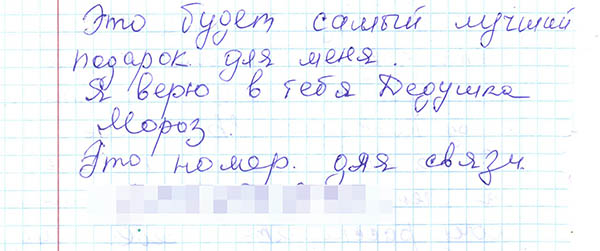 Это будет самый лучший
подарок для меня.
Я верю в тебя Дедушка
Мороз.
Это номар. для связи